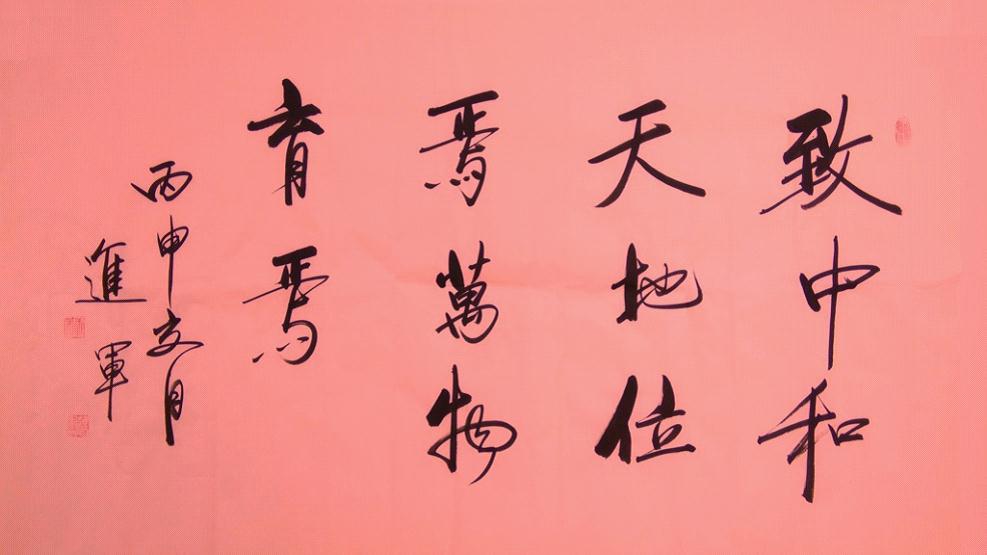 致中和
天地位
焉萬物
育焉
丙申文月
進軍